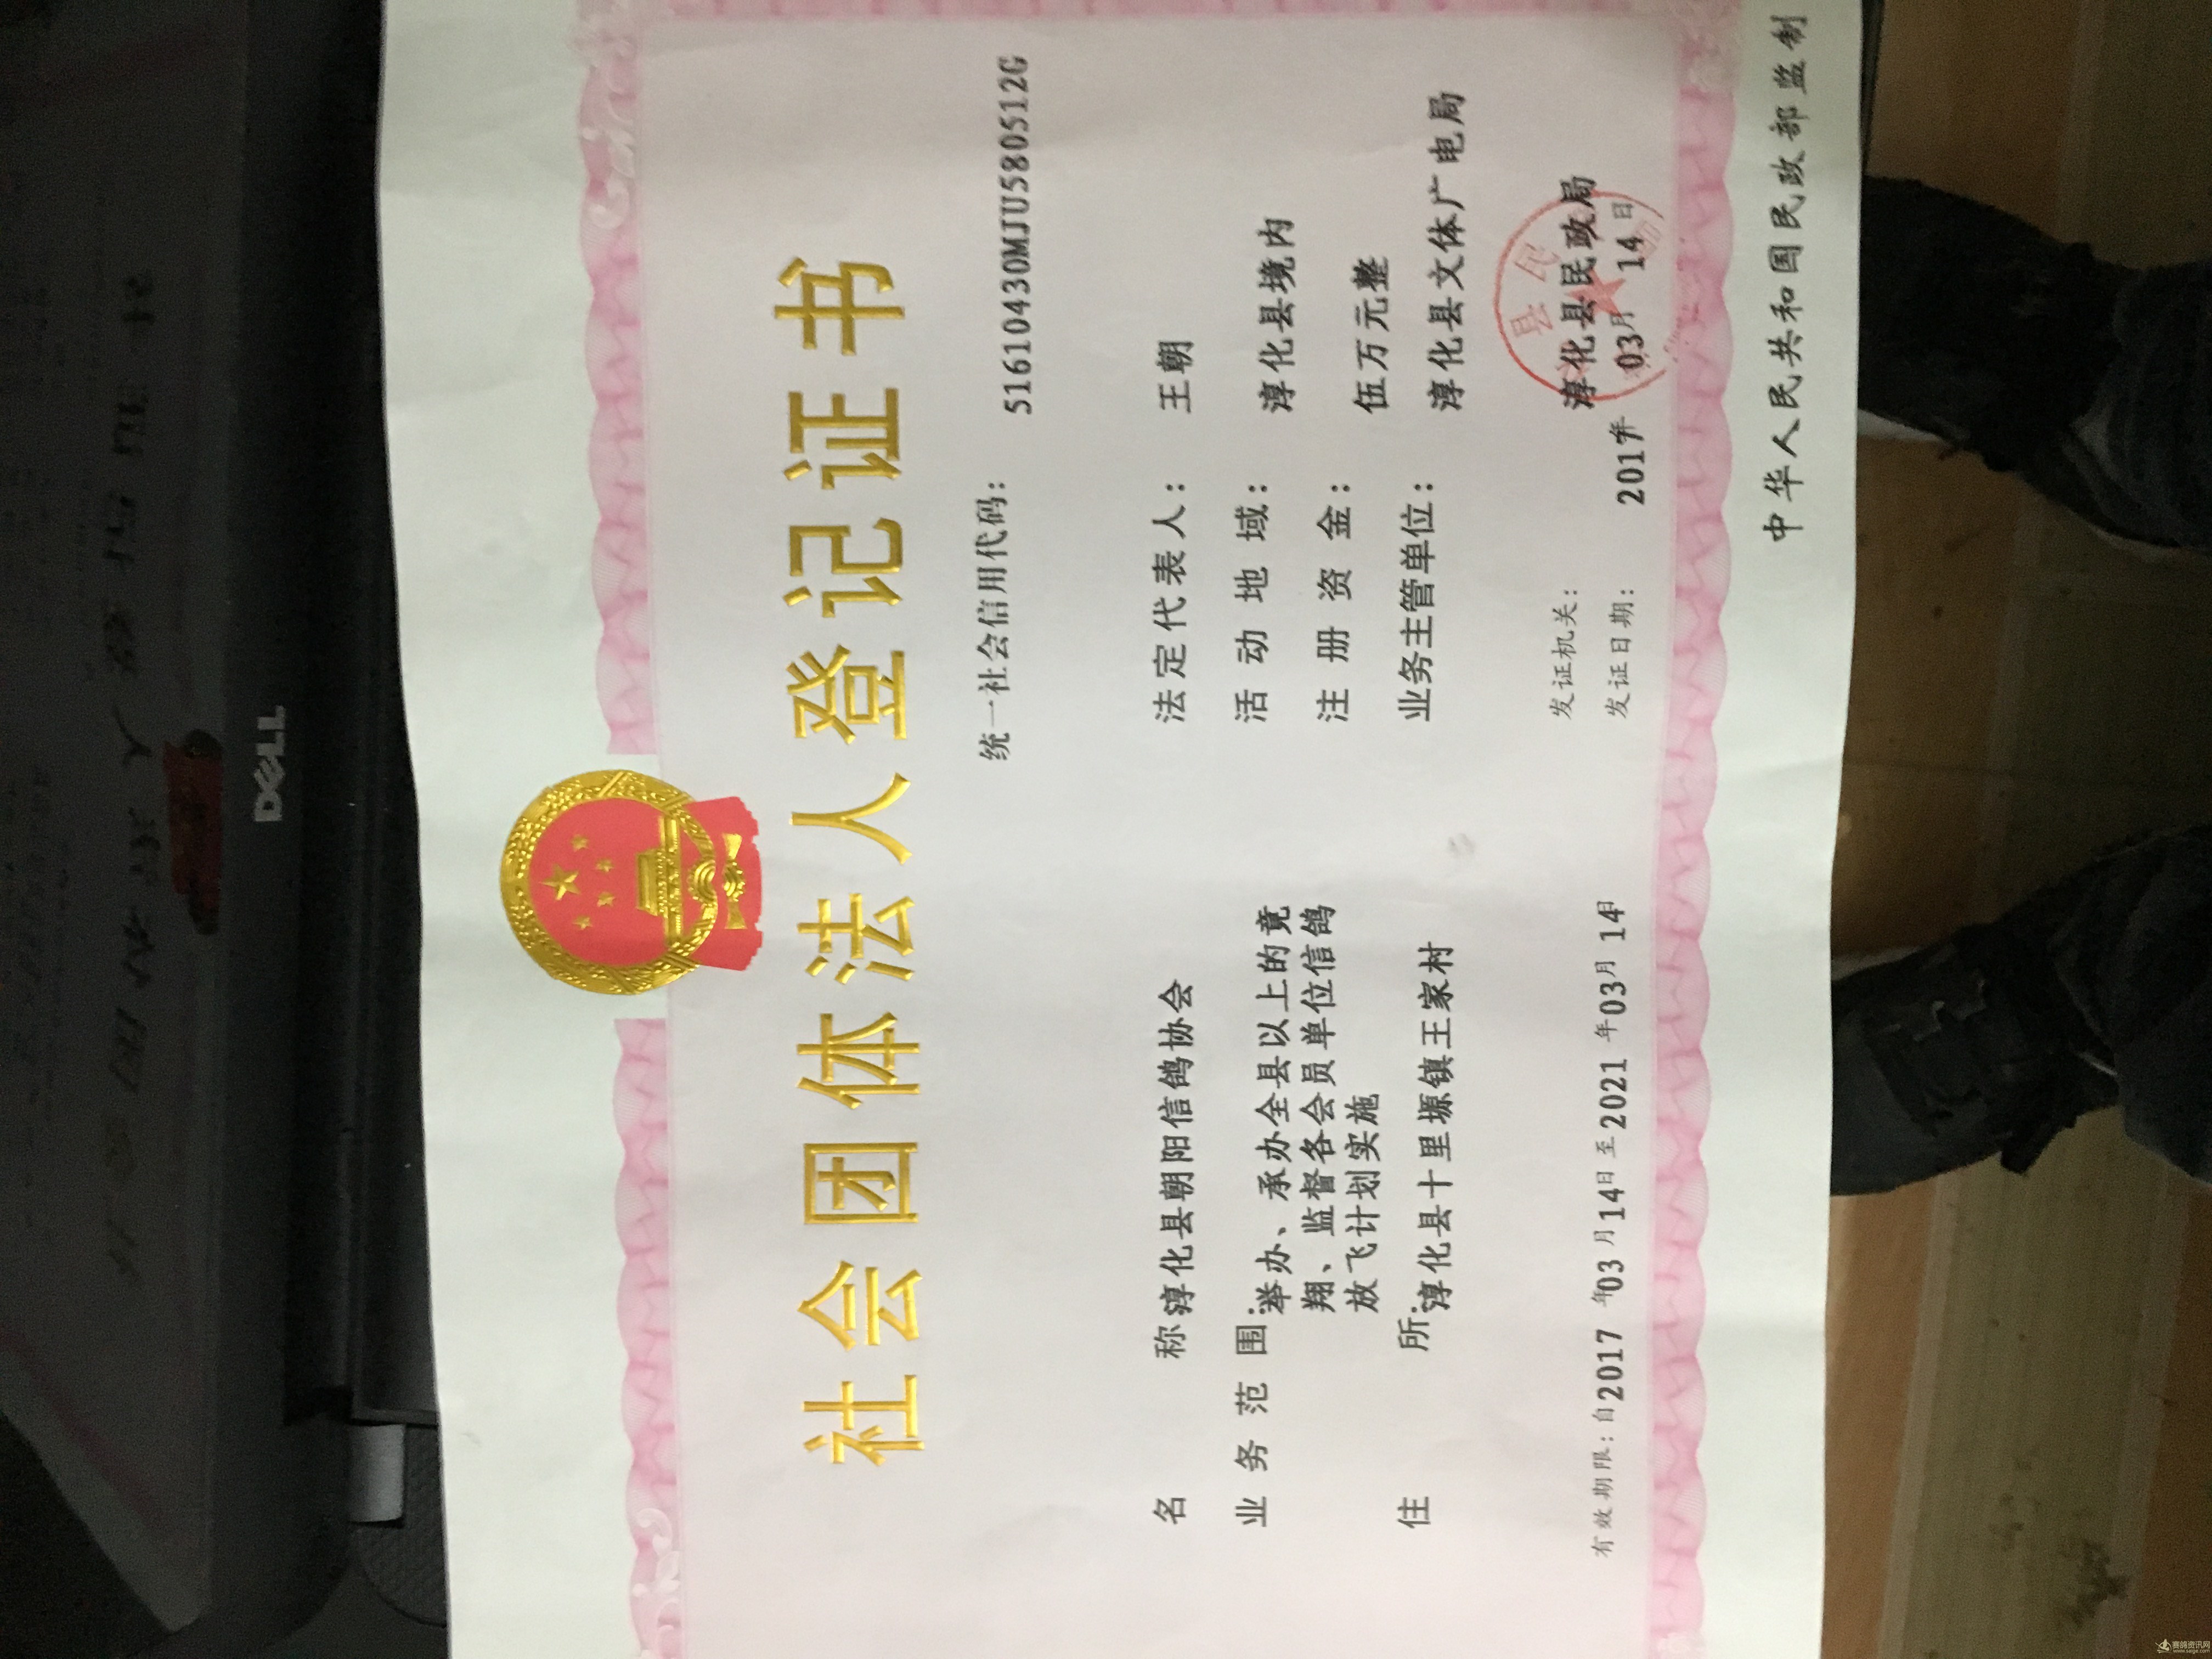 社会团体法人登记证书
统一社会信用代码:
51610430MJU580512G
名 称 淳化县朝阳信鸽协会
业务范围: 举办、承办全县以上的竟
翔、监督各会员单位信鸽
放飞计划实施
住 所: 淳化县十里塬镇王家村
法定代表人: 王朝
活动地域: 淳化县境内
注册资金: 伍万元整
业务主管单位: 淳化县文体广电局
发证机关: 淳化县民政局
发证日期: 2017年03月14日
有效期限:自2017年03月14日至2021年03月14日
中华人民共和国民政部监制
DELL
赛鸽资讯网